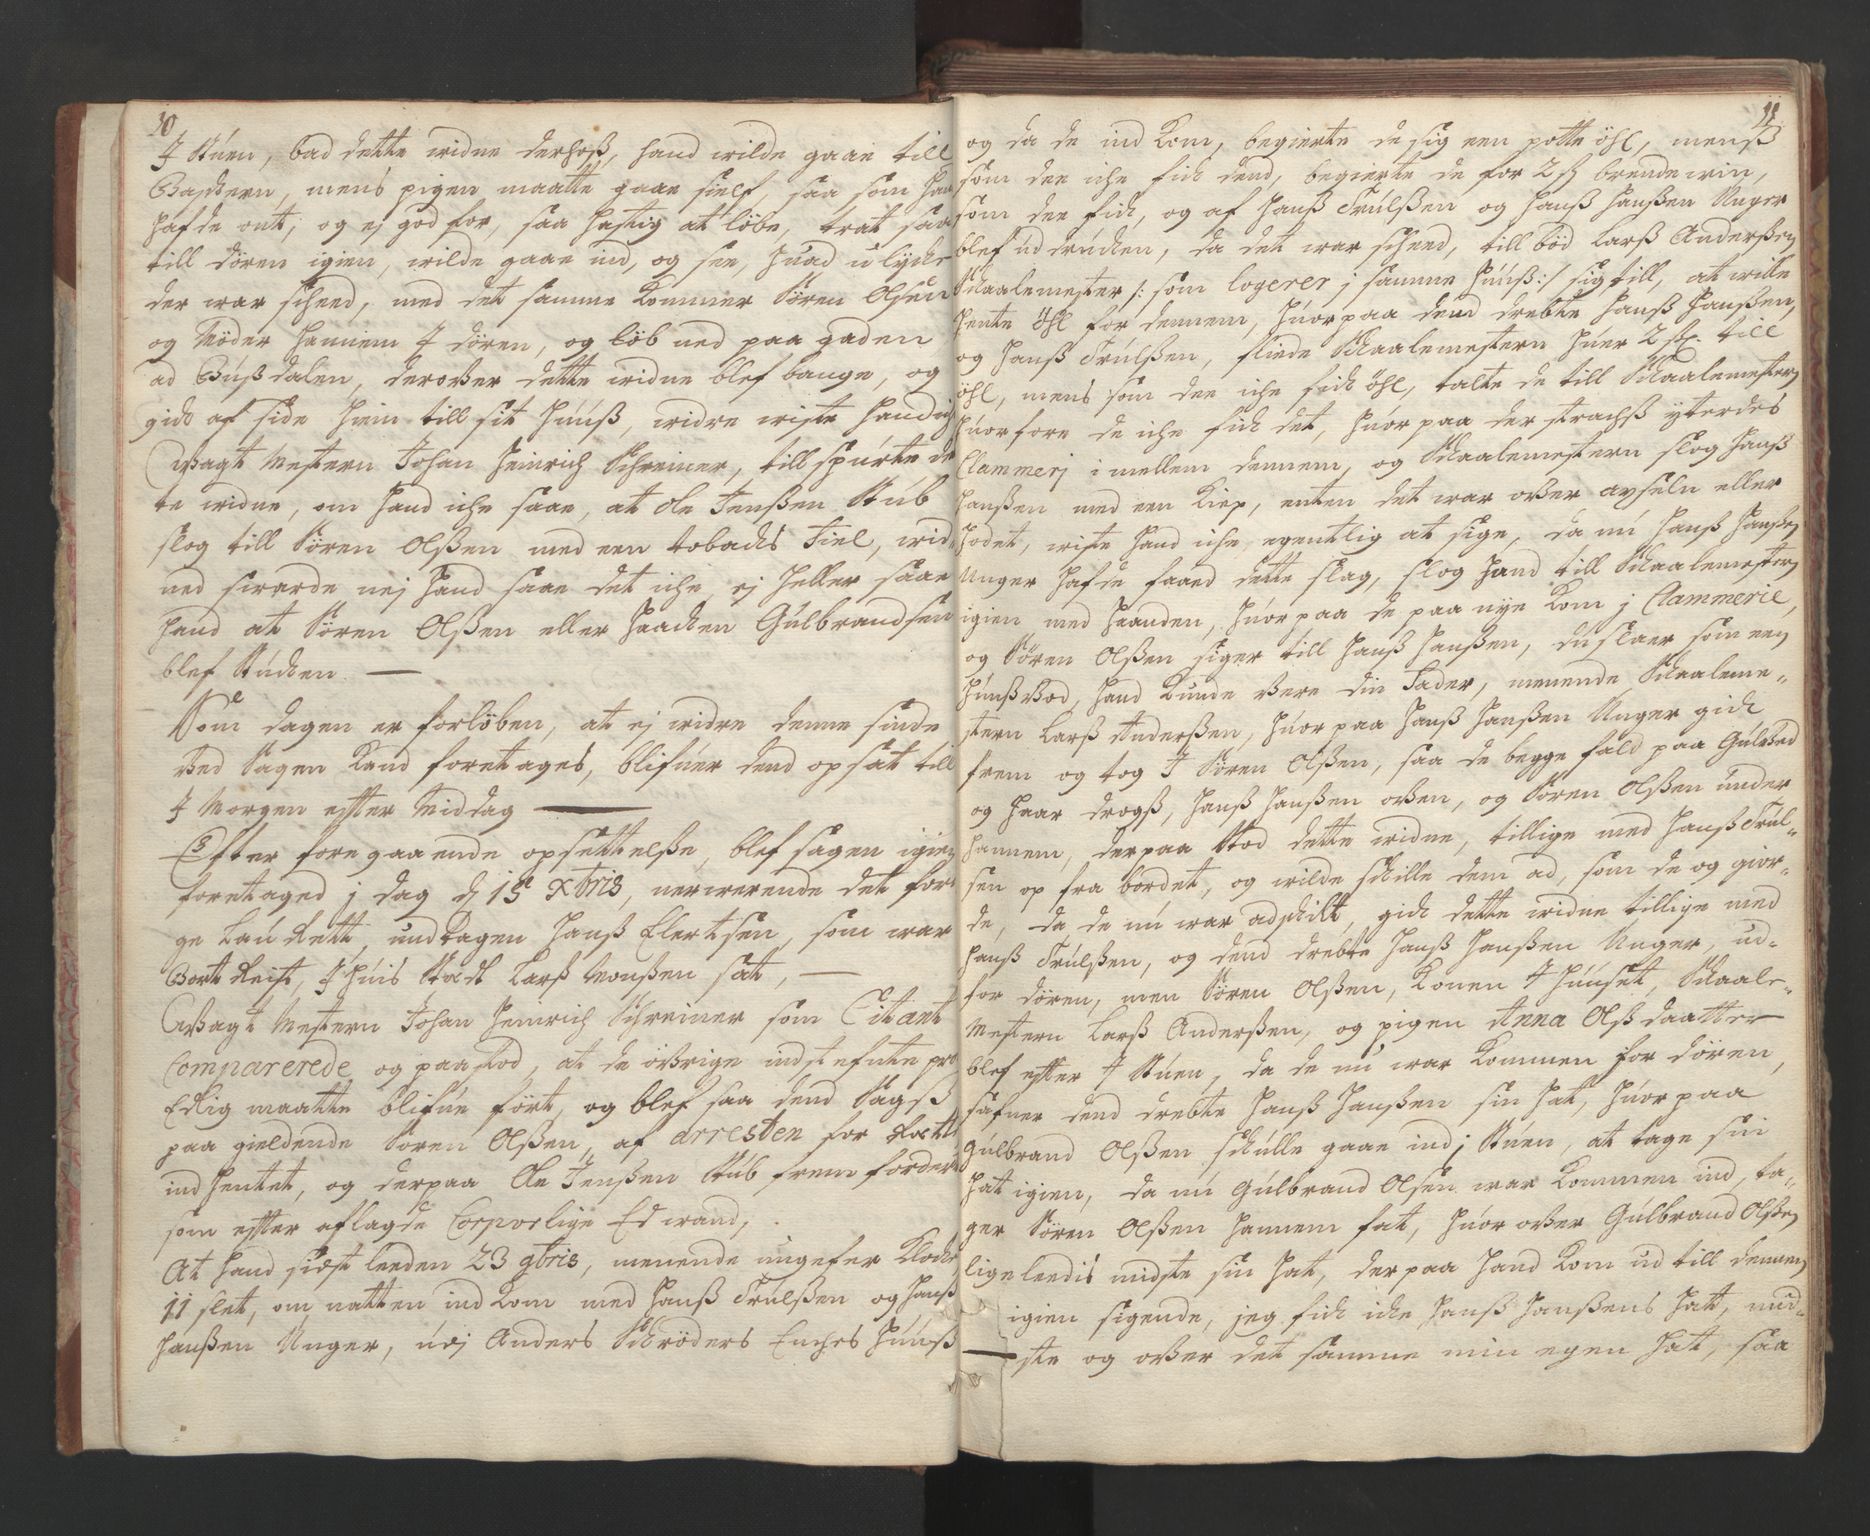 10
J Stuen, bad dette vidne derhoß, hand vilde gaae till
Badskern, mens pigen maatte gaae sielf, saa som han
hafde ont, og ej god for, saa hastig at løbe, trat saa
till døren igien, vilde gaae ind, og see, huad ulycke
der war scheed, med det samme kommer Søren Olsen
og Møder hannem J døren, og løb ned paa gaden
ad Bußdalen, derover dette vidne blef bange, og
gick af side hiem till sit Huuß, vidre viste hand ich
Wagt Mestern Johan Heinrich Schreiner, tillspurte det
te vidne, om hand iche saae, at Ole Jenßen Stub
slog till Søren Olßen med een tobacks Fiel, vid-
ned svarde nej hand saae det iche, ej heller saae
hand at Søren Olßen eller Haachen Gulbrandsen
blef Stucken. —
Som dagen er forløben, at ej vidre denne sinde
ved Sagen kand foretages, blifuer dend opsat till
J Morgen efter Middag —
Efter foregaaende opsettelße, blef sagen igien
foretaged j dag d 15 Xbris, nerverende det fori
ge Laurett, undtagen Hanß Elertsen, som war
Bort Reist, J huis Stæd Larß Monßen sat, —
Wagt Mestern Johan Heinrich Schreiner som Citant
Comparerede og paastod, at de øvrige indstefnte pro
Edlig maatte blifue ført, og blef saa dend Sagß
paa gieldende Søren Olßen, af arresten for Rætte
ind hentet, og derpaa Ole Jenßen Stub frem fordert
som efter aflagde Corporlige Ed wand,
At hand sidst leeden 23 9bris, menende ungefer Klocke
11 slet, om natten ind kom med Hanß Trulßen og Hanß
Hanßen Unger, udj Anders Schrøders Enches Huuß
11
og da de ind kom, begierte de sig een potte øhl, menß
som dee iche fick dend, begierte de for 2 ß brendewin,
som dee fick, og af Hanß Trulßen og Hanß Hanßen Unger
blef ud drucken, da det war scheed, till bød Larß Anderßen
Skaalemester /: som logerer j samme Huuß :/ sig till, at wille
hente øhl for dennem, huorpaa dend drebte Hanß Hanßen,
og Hanß Trulßen, fliede Skaalemestern huer 2 st. till
øhl, mens som dee iche fick øhl, talte de till Skaalemestern
huorfore de iche fick det, huorpaa der strachß yterdes
Clammerj imellem dennem, og Skaalemestern slog Hanß
Hanßen med een Kiep, enten det war over axseln eller
Hodet, viste hand iche egentlig at sige, da nu Hanß Hanßen
Unger hafde faaed dette slag, slog hand till Skaalemestern
igien med Haanden, huorpaa de paa nye kom j Clammerie,
og Søren Olßen siger till Hanß Hanßen, du slaer som een
Hunßvod, hand kunde vere din Fader, menende Skaaleme-
stern Larß Anderßen, huorpaa Hanß Hanßen Unger gick
frem og tog J Søren Olßen, saa de begge fald paa Gulved
og haar drogß, Hanß Hanßen oven, og Søren Olßen under
hannem, derpaa stod dette vidne, tillige med Hanß Trul-
sen op fra bordet, og vilde schille dem ad, som de og gior-
de, da de nu war adschilt, gick dette vidne tillige med
Hanß Trulßen, og dend drebte Hanß Hanßen Unger, ud-
for døren, men Søren Olßen, Konen J Huuset, Skaale-
Mestern Larß Anderßen, og pigen Anna Olßdaatter
blef efter J Stuen, da de nu war kommen for døren,
safner dend drebte Hanß Hanßen sin Hat, huorpaa
Gulbrand Olßen schulle gaae ind j Stuen, at tage sin
Hat igien, da nu Gulbrand Olsen war kommen ind, ta-
ger Søren Olßen hannem fat, huorover Gulbrand Olßen
ligeleedis midste sin Hat, derpaa hand kom ud till dennem
igien sigende, jeg fick icke Hanß Hanßens Hatt, mid-
ste og over det samme min egen Hat, saa